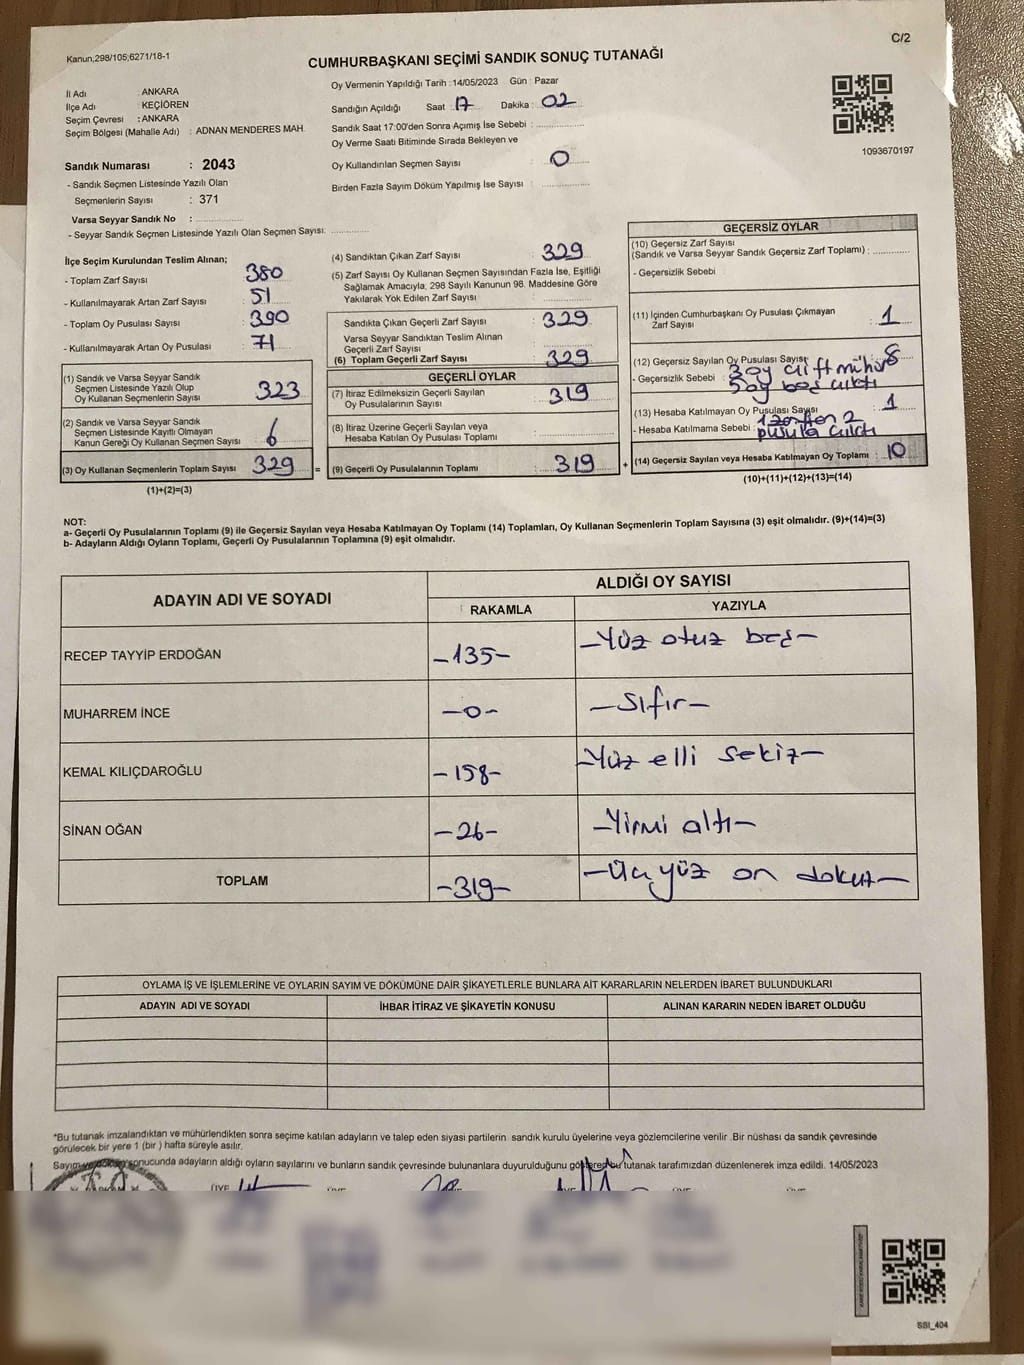 Kanun,298/105,6271/18-1
C/2
CUMHURBAŞKANI SEÇİMİ SANDIK SONUÇ TUTANAĞI
İl Adı : ANKARA
İlçe Adı : KEÇİÖREN
Seçim Çevresi : ANKARA
Seçim Bölgesi (Mahalle Adı) : ADNAN MENDERES MAH.
Sandık Numarası : 2043
- Sandık Seçmen Listesinde Yazılı Olan
Seçmenlerin Sayısı : 371
Varsa Seyyar Sandık No :
- Seyyar Sandık Seçmen Listesinde Yazılı Olan Seçmen Sayısı:
Oy Vermenin Yapıldığı Tarih : 14/05/2023 Gün : Pazar
Sandığın Açıldığı Saat : 17 Dakika : 02
Sandık Saat 17:00'den Sonra Açımış İse Sebebi :
Oy Verme Saati Bitiminde Sırada Bekleyen ve
Oy Kullandırılan Seçmen Sayısı : 0
Birden Fazla Sayım Döküm Yapılmış İse Sayısı :
1093670197
İlçe Seçim Kurulundan Teslim Alınan;
- Toplam Zarf Sayısı : 380
- Kullanılmayarak Artan Zarf Sayısı : 51
- Toplam Oy Pusulası Sayısı : 390
- Kullanılmayarak Artan Oy Pusulası : 71
(1) Sandık ve Varsa Seyyar Sandık
Seçmen Listesinde Yazılı Olup
Oy Kullanan Seçmenlerin Sayısı : 323
(2) Sandık ve Varsa Seyyar Sandık
Seçmen Listesinde Kayıtlı Olmayan
Kanun Gereği Oy Kullanan Seçmen Sayısı : 6
(3) Oy Kullanan Seçmenlerin Toplam Sayısı : 329 =
(1)+(2)=(3)
(4) Sandıktan Çıkan Zarf Sayısı : 329
(5) Zarf Sayısı Oy Kullanan Seçmen Sayısından Fazla İse, Eşitliği
Sağlamak Amacıyla, 298 Sayılı Kanunun 98. Maddesine Göre
Yakılarak Yok Edilen Zarf Sayısı :
Sandıkta Çıkan Geçerli Zarf Sayısı : 329
Varsa Seyyar Sandıktan Teslim Alınan
Geçerli Zarf Sayısı :
(6) Toplam Geçerli Zarf Sayısı : 329
GEÇERLİ OYLAR
(7) İtiraz Edilmeksizin Geçerli Sayılan
Oy Pusulalarının Sayısı : 319
(8) İtiraz Üzerine Geçerli Sayılan veya
Hesaba Katılan Oy Pusulası Toplamı :
(9) Geçerli Oy Pusulalarının Toplamı : 319 +
GEÇERSİZ OYLAR
(10) Geçersiz Zarf Sayısı
(Sandık ve Varsa Seyyar Sandık Geçersiz Zarf Toplamı) :
- Geçersizlik Sebebi :
(11) İçinden Cumhurbaşkanı Oy Pusulası Çıkmayan
Zarf Sayısı : 1
(12) Geçersiz Sayılan Oy Pusulası Sayısı : 8
- Geçersizlik Sebebi : 3 oy çift mühür
5 oy boş çıktı
(13) Hesaba Katılmayan Oy Pusulası Sayısı : 1
- Hesaba Katılmama Sebebi : 1 zarftan 2
pusula çıktı
(14) Geçersiz Sayılan veya Hesaba Katılmayan Oy Toplamı : 10
(10)+(11)+(12)+(13)=(14)
NOT:
a- Geçerli Oy Pusulalarının Toplamı (9) ile Geçersiz Sayılan veya Hesaba Katılmayan Oy Toplamı (14) Toplamları, Oy Kullanan Seçmenlerin Toplam Sayısına (3) eşit olmalıdır. (9)+(14)=(3)
b- Adayların Aldığı Oyların Toplamı, Geçerli Oy Pusulalarının Toplamına (9) eşit olmalıdır.
ADAYIN ADI VE SOYADI ALDIĞI OY SAYISI
RAKAMLA YAZIYLA
RECEP TAYYİP ERDOĞAN -135- -Yüz otuz beş-
MUHARREM İNCE -0- -Sıfır-
KEMAL KILIÇDAROĞLU -158- -Yüz elli sekiz-
SİNAN OĞAN -26- -Yirmi altı-
TOPLAM -319- -Üç yüz on dokuz-
OYLAMA İŞ VE İŞLEMLERİNE VE OYLARIN SAYIM VE DÖKÜMÜNE DAİR ŞİKAYETLERLE BUNLARA AİT KARARLARIN NELERDEN İBARET BULUNDUKLARI
ADAYIN ADI VE SOYADI İHBAR İTİRAZ VE ŞİKAYETİN KONUSU ALINAN KARARIN NEDEN İBARET OLDUĞU
*Bu tutanak imzalandıktan ve mühürlendikten sonra seçime katılan adayların ve talep eden siyasi partilerin sandık kurulu üyelerine veya gözlemcilerine verilir .Bir nüshası da sandık çevresinde
görülecek bir yere 1 (bir ) hafta süreyle asılır.
Sayım ve döküm sonucunda adayların aldığı oyların sayılarını ve bunların sandık çevresinde bulunanlara duyurulduğunu gösteren bu tutanak tarafımızdan düzenlenerek imza edildi. 14/05/2023
SSI_404